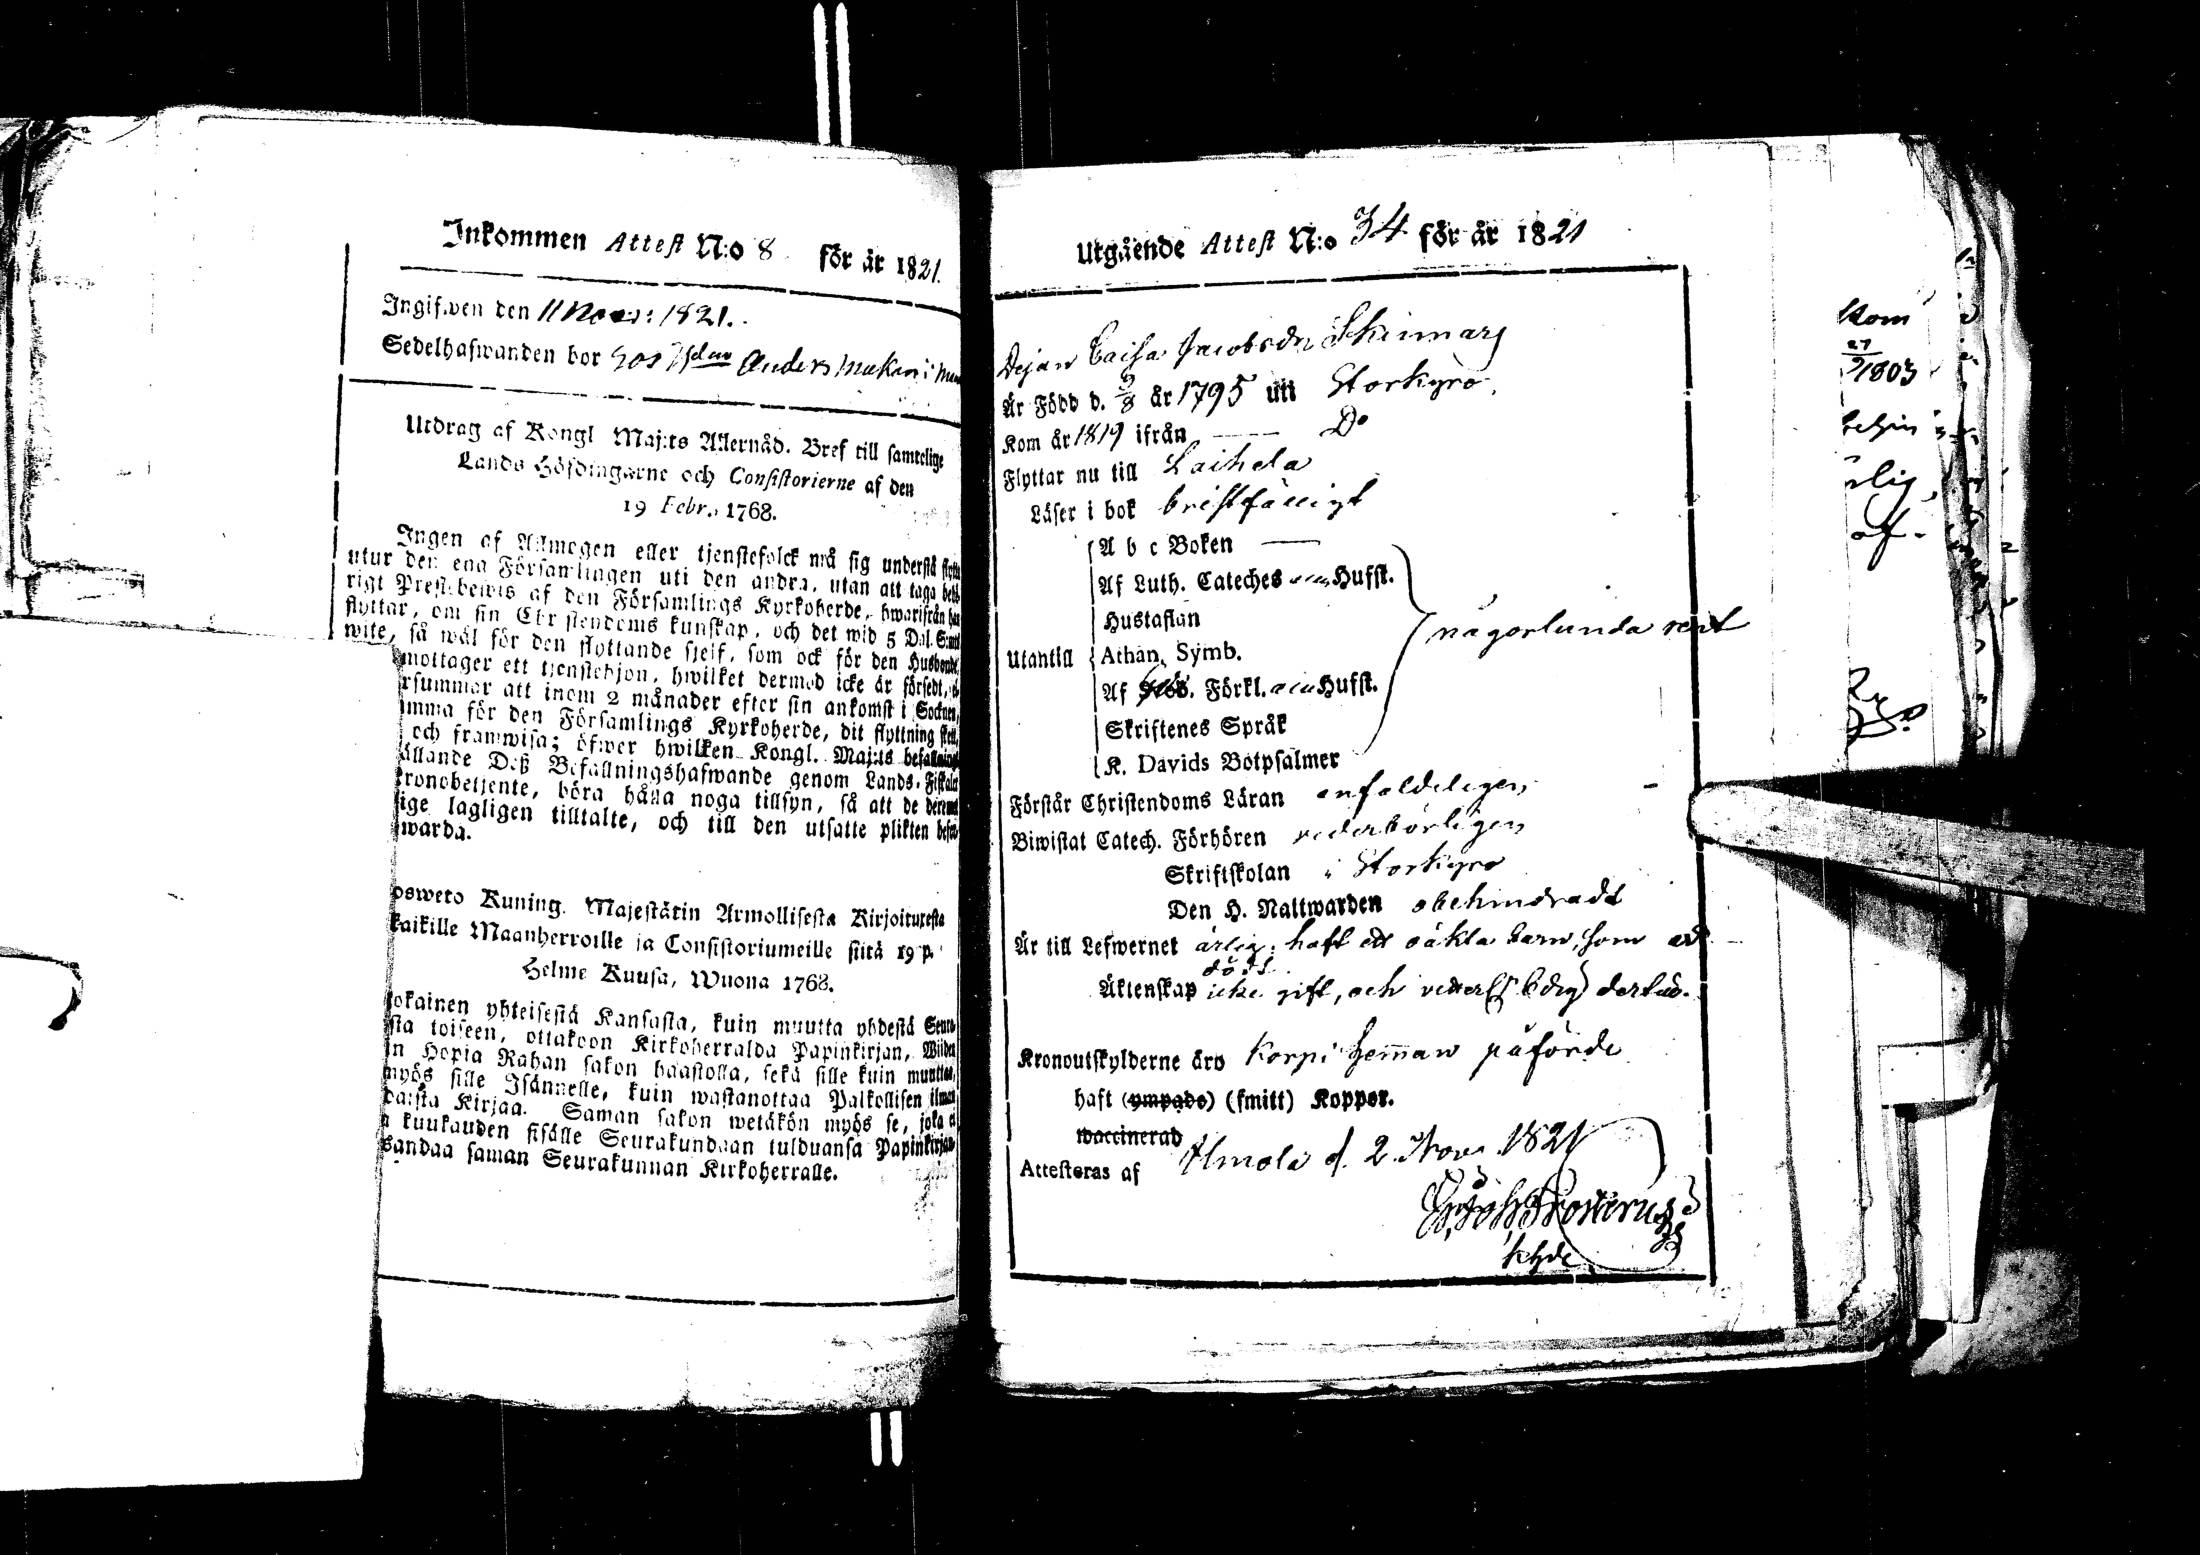 Inkommen Attest N:o 8 för år 1821.
Ingifwen den 11 Nov:r: 1821.
Sedelhafwanden bor hos Anders Mukari i
Utdrag af Kongl Maj:ts Allernåd. Bref till samtelige
Lands Höfdingarne och Consistorierne af den
19 Febr., 1768.
Ingen af Allmogen eller tjenstefolck må sig understå flytta
utur den ena Församlingen uti den andra, utan att taga behö-
rigt Prestbewis af den Församlings Kyrkoherde, hwarifrån han
flyttar, om sin Christendoms kunskap, och det wid 5 Dal. S:mt
wite, så wäl för den flyttande sjelf, som ock för den Husbonde,
mottager ett tjenstehjon, hwilket dermed icke är försedt,
rsummar att inom 2 månader efter sin ankomst i Socknen,
mma för den Församlings Kyrkoherde, dit flyttning skett,
och framwisa; öfwer hwilken Kongl. Maj:ts befallning
ällande Deß Befallningshafwande genom Lands-Fiskaler
ronobetjente, böra hålla noga tillsyn, så att de deremot
ige lagligen tilltalte, och till den utsatte plikten befor-
warda.
osweto Kuning. Majestätin Armollisesta Kirjoituxesta
kaikille Maanherroille ja Consistoriumeille siitä 19 p.
Helme Kuusa, Wuona 1768.
okainen yhteisestä Kansasta, kuin muutta yhdestä Seura-
sta toiseen, ottakoon Kirkoherralda Papinkirjan, Wiiden
n Hopia Rahan sakon haastolla, sekä sille kuin muuttaa,
myös sille Isännelle, kuin wastanottaa Palkollisen ilman
daista Kirjaa. Saman sakon wetäkön myös se, joka ei
kuukauden sisälle Seurakundaan tulduansa Papinkirjan-
sandaa saman Seurakunnan Kirkoherralle.
Utgående Attest N:o 34 för år 1821
Pejan Caisa Jacobsdr Skinnars
Är Född d. 9/8 år 1795 uti Storkyro.
Kom år 1819 ifrån — Do
Flyttar nu till Laihela
Läser i bok bristfälligt
A b c Boken —
Af Luth. Cateches Hufst.
Hustaflan
någorlunda rent
Utantill Athan. Symb.
Af Förkl. Hufst.
Skriftenes Språk
K. Davids Botpsalmer
Förstår Christendoms Läran enfaldeligen
Biwistat Catech. Förhören vederbörligen
Skriftskolan i Storkyro
Den H. Nattwarden obehindradt
Är till Lefwernet ärlig, haft ett oäkta barn, som är
dödt
Äktenskap icke gift, och ledig dertill.
Kronoutskylderne äro Korpi hemman påförde
haft (ympade) (smitt) Koppor.
waccinerad
Attesteras af Ilmola d. 2. Nov. 1821
Kom
27/9 1803